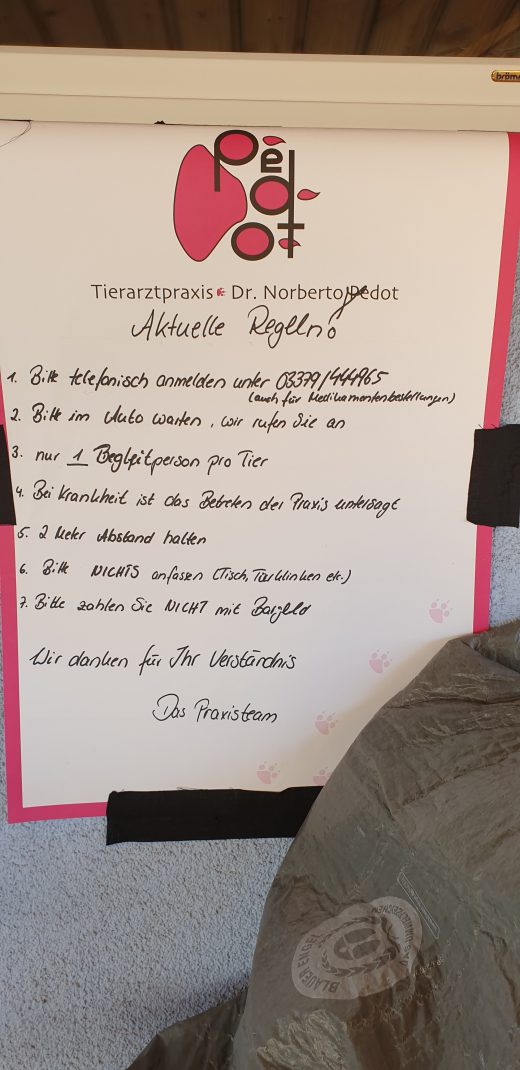 bröm
Pedot
Tierarztpraxis Dr. Norberto Pedot
Aktuelle Regeln:
1. Bitte telefonisch anmelden unter 03379/444965
(auch für Medikamentenbestellungen)
2. Bitte im Auto warten, wir rufen Sie an
3. nur 1 Begleitperson pro Tier
4. Bei Krankheit ist das Betreten der Praxis untersagt
5. 2 Meter Abstand halten
6. Bitte NICHTS anfassen (Tisch, Türklinken etc.)
7. Bitte zahlen Sie NICHT mit Bargeld
Wir danken für Ihr Verständnis
Das Praxisteam
BLAUER ENGEL
UMWELTZEICHEN